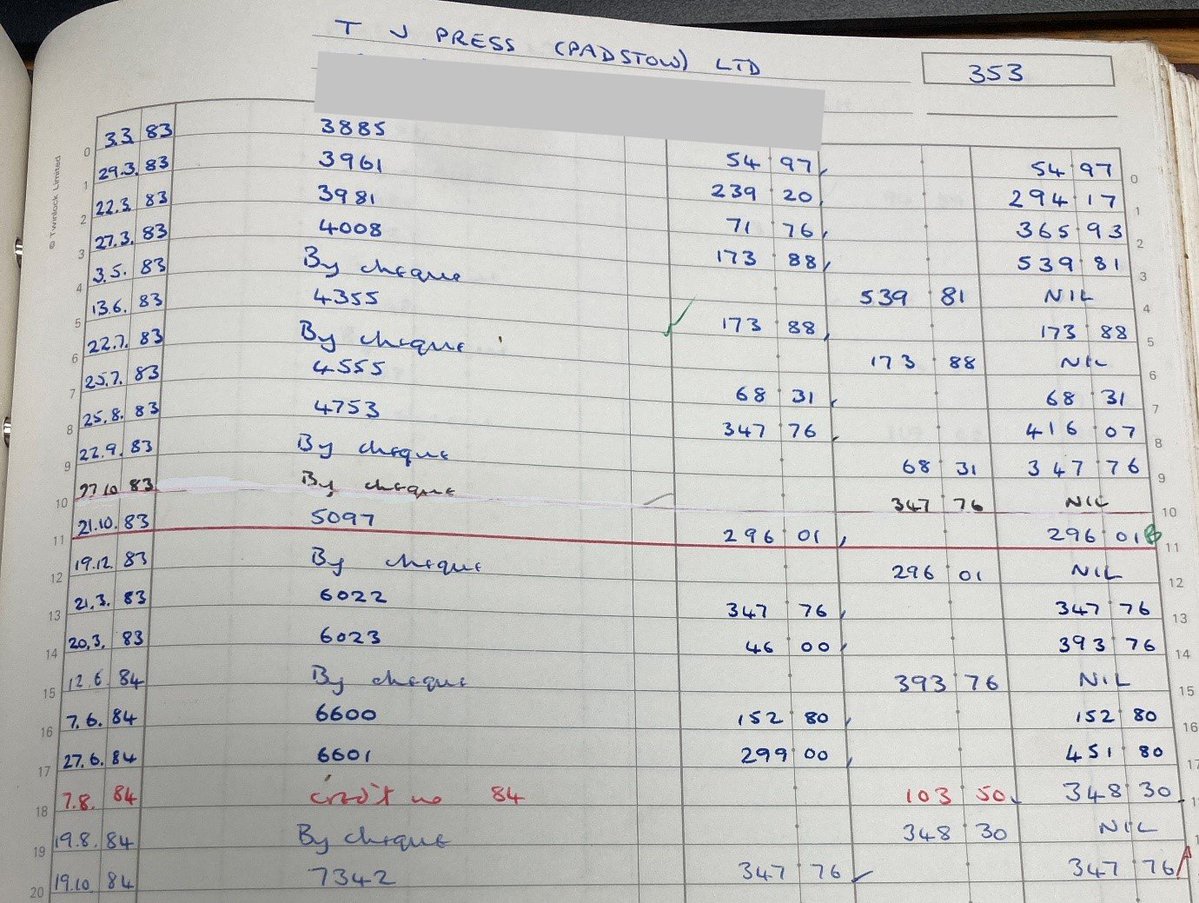 T J PRESS (PADSTOW) LTD
353
© Twinlock Limited
0 3.3. 83 3885 54 97 54 97 0
1 29.3. 83 3961 239 20 294 17 1
2 22.3. 83 3981 71 76 365 93 2
3 27.3. 83 4008 173 88 539 81 3
4 3.5. 83 By cheque 539 81 NIL 4
5 13.6. 83 4355 173 88 173 88 5
6 22.7. 83 By cheque 173 88 NIL 6
7 25.7. 83 4555 68 31 68 31 7
8 25.8. 83 4753 347 76 416 07 8
9 22.9. 83 By cheque 68 31 347 76 9
10 10 83 By cheque 347 76 NIL 10
11 21.10. 83 5097 296 01 296 01 11
12 19.12. 83 By cheque 296 01 NIL 12
13 21.3. 83 6022 347 76 347 76 13
14 20.3. 83 6023 46 00 393 76 14
15 12.6 84 By cheque 393 76 NIL 15
16 7.6. 84 6600 152 80 152 80 16
17 27.6. 84 6601 299 00 451 80 17
18 7.8. 84 Credit no 84 103 50 348 30
19 19.8. 84 By cheque 348 30 NIL
20 19.10. 84 7342 347 76 347 76